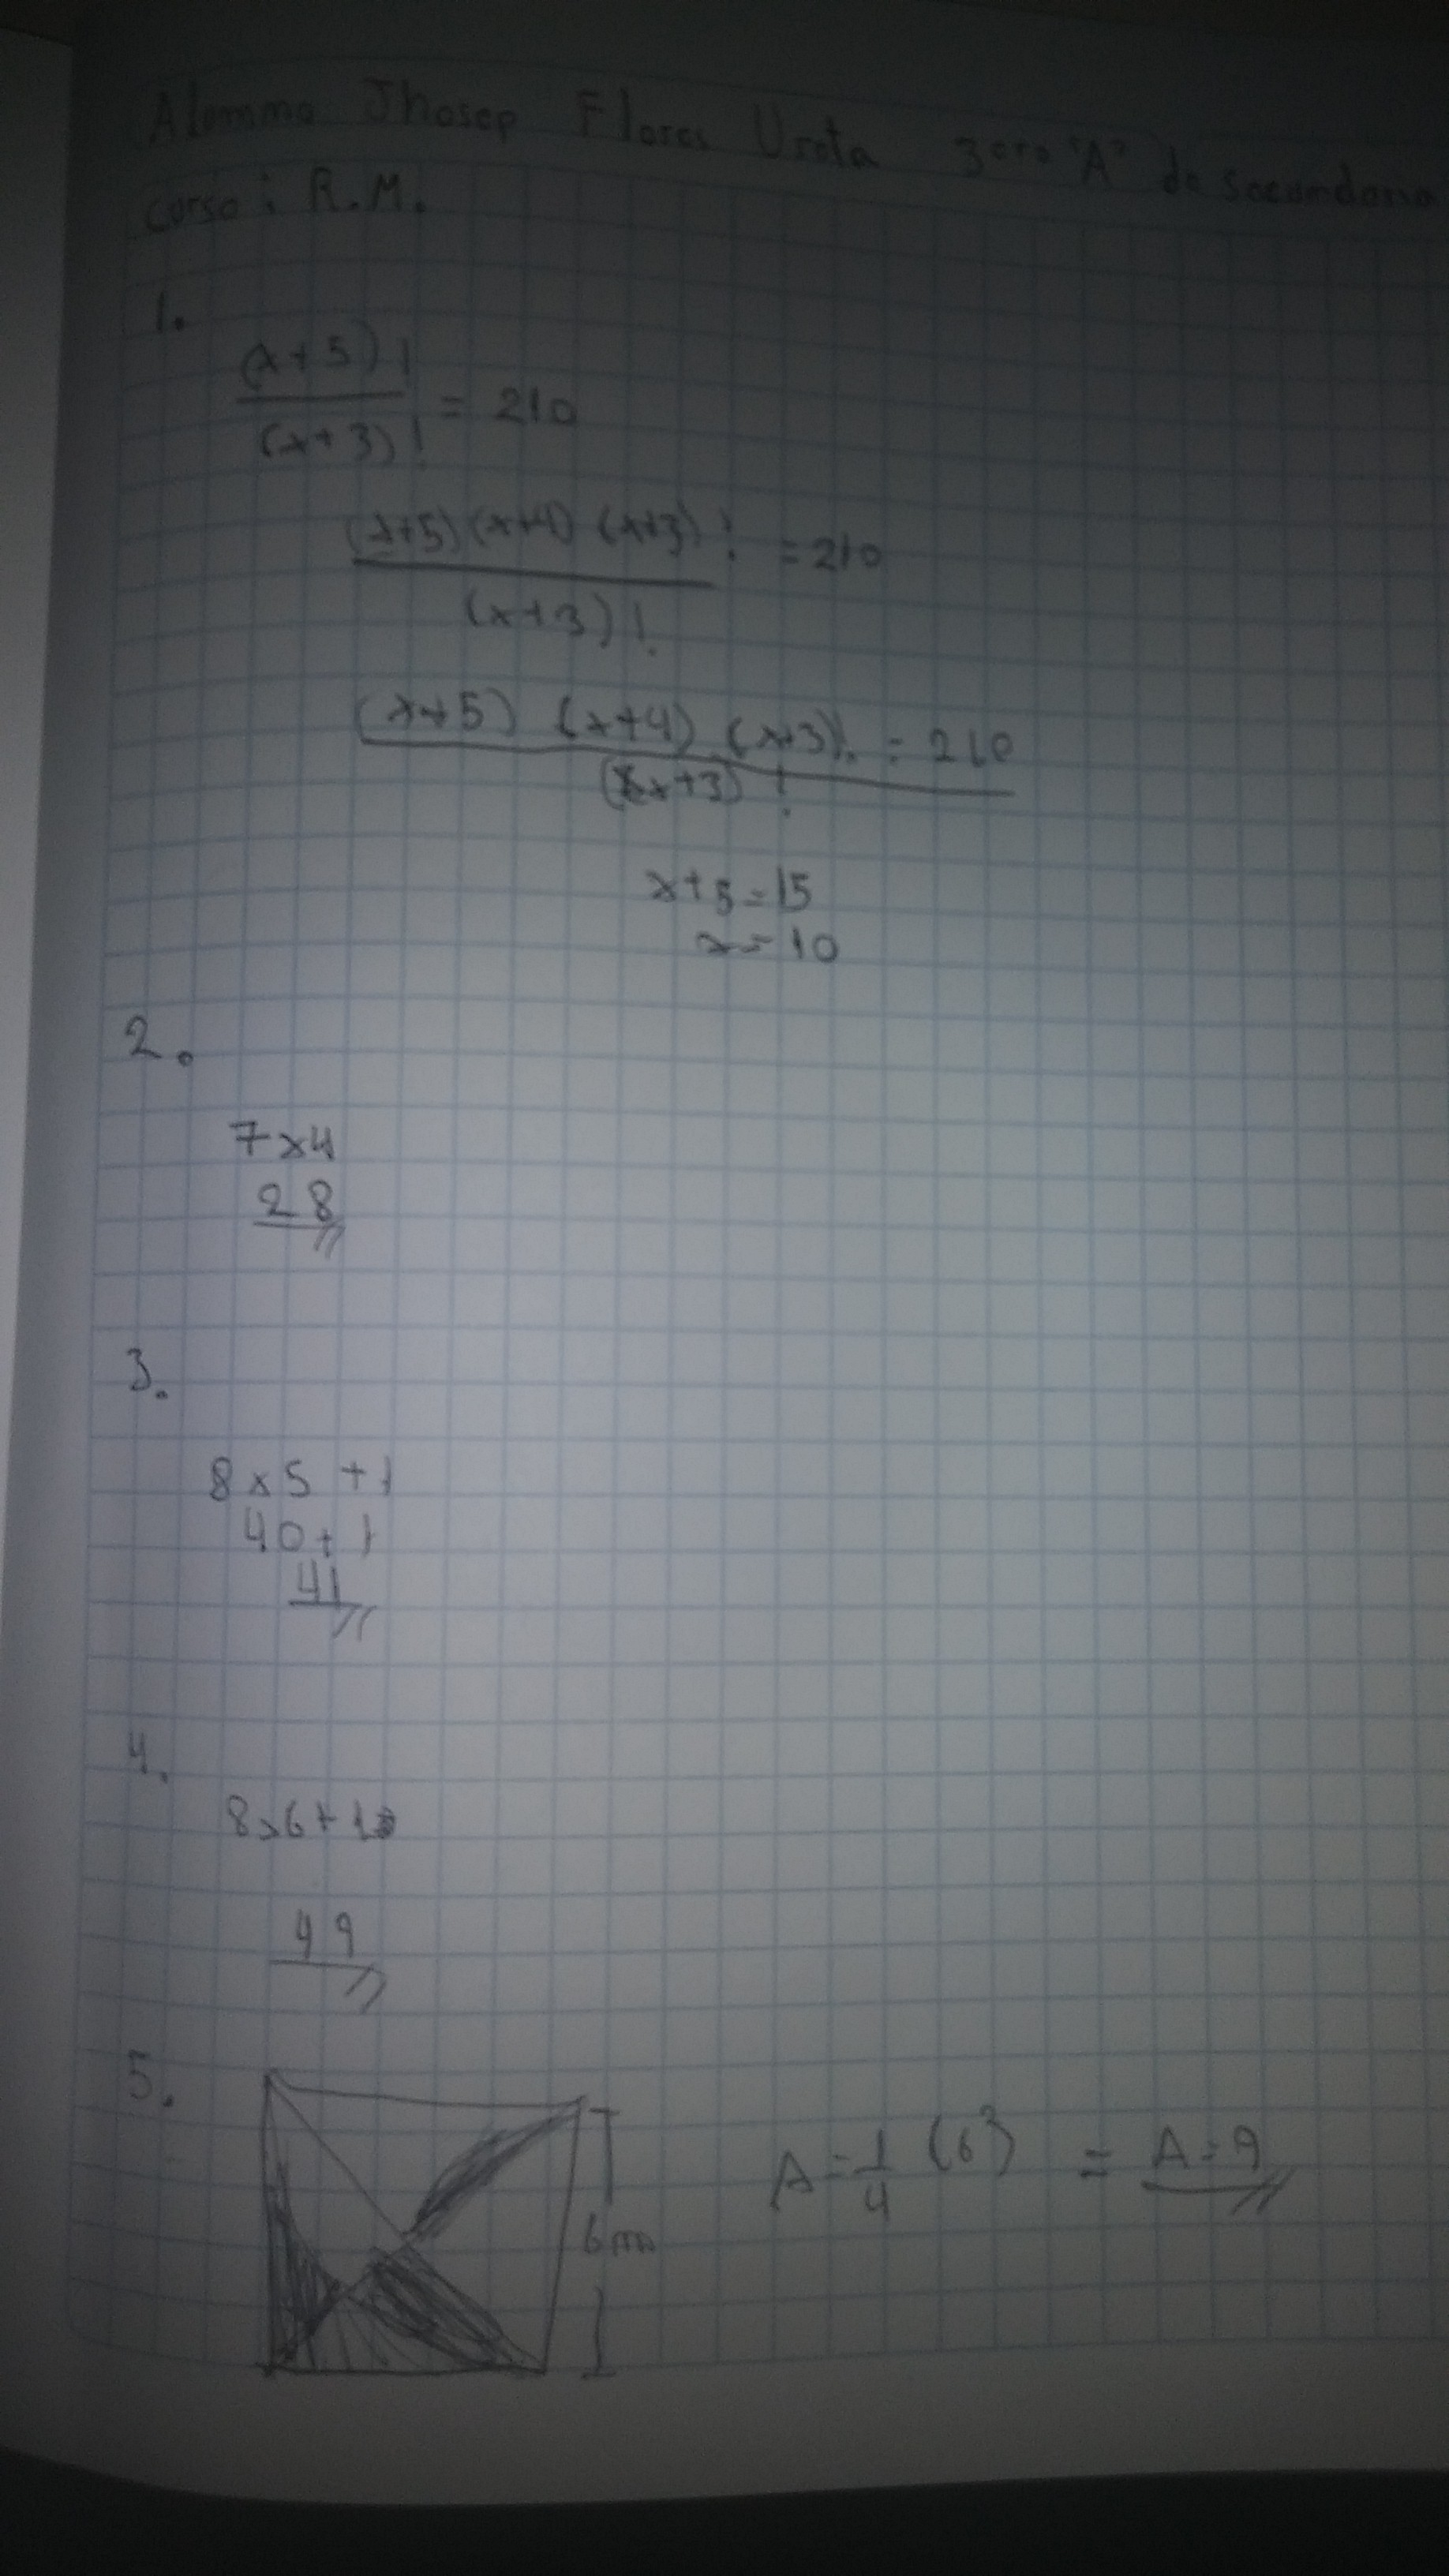 Alommo Jhosep Flores Urota 3ero "A" de secundaria
curso: R.M.
1.
(x+5)!
= 210
(x+3)!
(x+5)(x+4)(x+3)! = 210
(x+3)!
(x+5) (x+4) (x+3)! = 210
(x+3)!
x+5=15
x=10
2.
7x4
28
3.
8x5+1
40+1
41
4.
8x6+1
49
5.
6m
A=1/4 (6²) = A=9